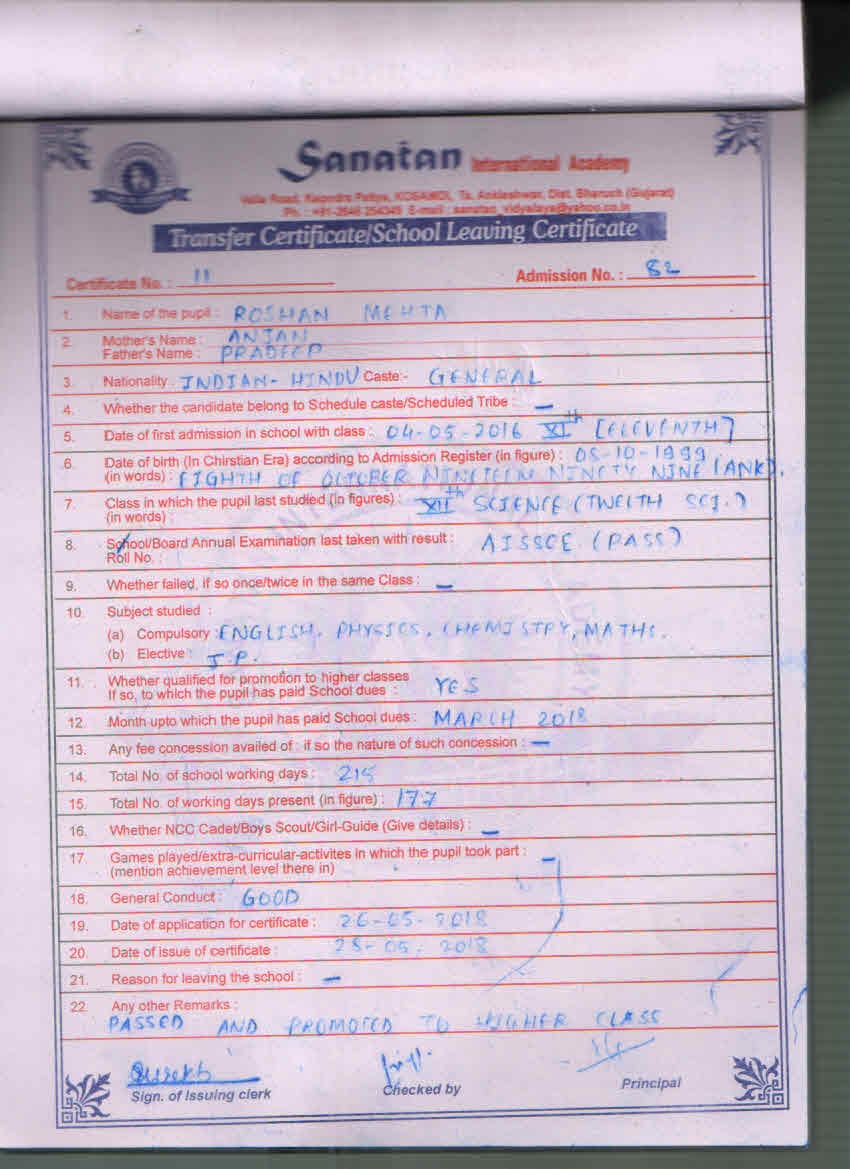 Sanatan International Academy
Valia Road, Rajendra Pattya, KOSAMDI, Ta. Ankleshwar, Dist. Bharuch (Gujarat)
Ph. : +91-2646 254345 E-mail : sanatan_vidyalaya@yahoo.co.in
Transfer Certificate/School Leaving Certificate
Certificate No. : 11 Admission No. : 82
1. Name of the pupil : ROSHAN MEHTA
2. Mother's Name : ANJAN
Father's Name : PRADEEP
3. Nationality INDIAN- HINDU Caste:- GENERAL
4. Whether the candidate belong to Schedule caste/Scheduled Tribe : —
5. Date of first admission in school with class : 04-05-2016 XIth [ELEVENTH]
6. Date of birth (In Chirstian Era) according to Admission Register (in figure) : 08-10-1999
(in words) : EIGHTH OF OCTOBER NINETEEN NINETY NINE (ANK).
7. Class in which the pupil last studied (in figures) : XIIth SCIENCE (TWELTH SCI.)
(in words) :
8. School/Board Annual Examination last taken with result : AISSCE (PASS)
Roll No. :
9. Whether failed, if so once/twice in the same Class : —
10. Subject studied :
(a) Compulsory : ENGLISH, PHYSICS, CHEMISTRY, MATHS.
(b) Elective : I.P.
11. Whether qualified for promotion to higher classes
If so, to which the pupil has paid School dues : YES
12. Month upto which the pupil has paid School dues : MARCH 2018
13. Any fee concession availed of : if so the nature of such concession : —
14. Total No. of school working days : 215
15. Total No. of working days present (in figure) : 177
16. Whether NCC Cadet/Boys Scout/Girl-Guide (Give details) : —
17. Games played/extra-curricular-activites in which the pupil took part : —
(mention achievement level there in)
18. General Conduct : GOOD
19. Date of application for certificate : 26-05-2018
20. Date of issue of certificate : 28-05-2018
21. Reason for leaving the school : —
22. Any other Remarks :
PASSED AND PROMOTED TO HIGHER CLASS
Sign. of Issuing clerk Checked by Principal